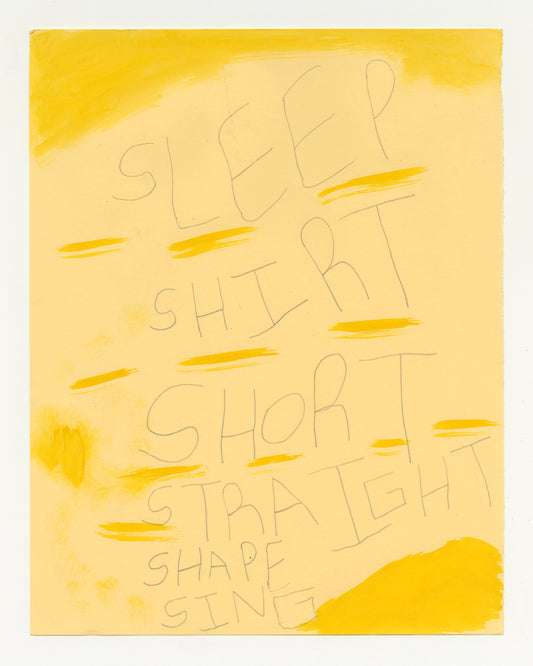 SLEEP
SHIRT
SHORT
STRAIGHT
SHAPE
SING